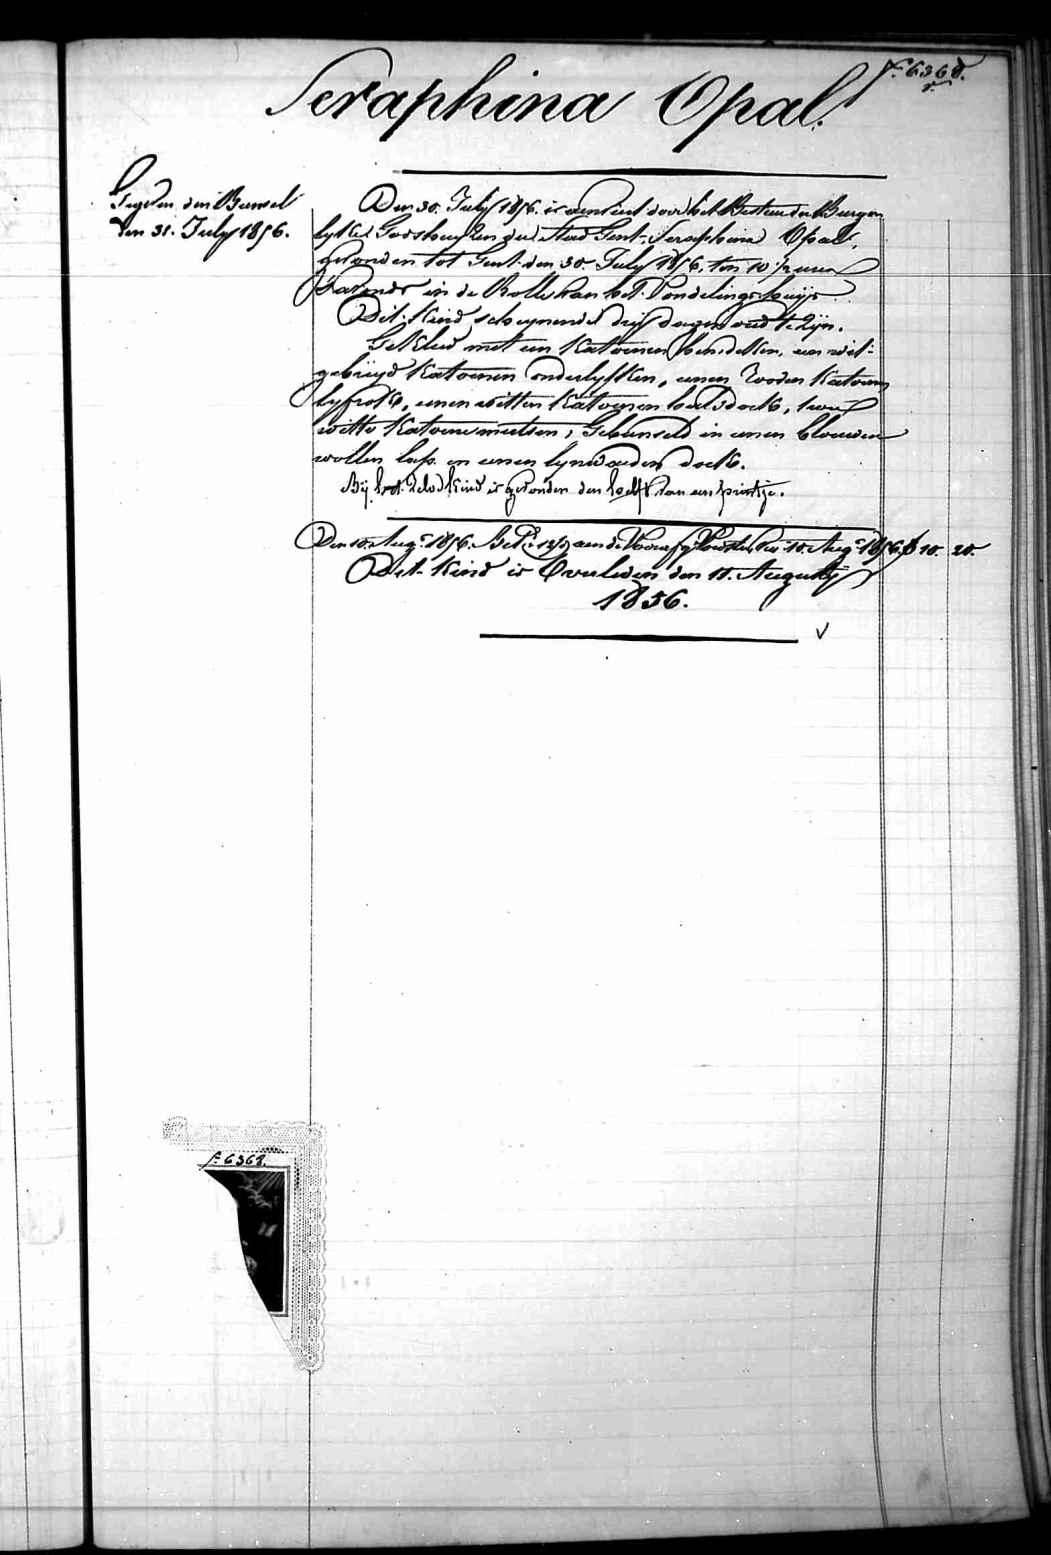 f.º 6368.
rº
Seraphina Opal.
Gegeven den Bunsel
den 31. July 1856.
Den 30. July 1856. is aenveerd door het Bestuer der Burger-
lyke Godshuyzen der Stad Gent, Seraphina Opal,
gevonden tot Gent den 30. July 1856, ten 10 ½ uren
s'avonds in de Rolle van het Vondelingshuijs.
Dit Kind scheynende drij dagen oud te zijn.
Gekleed met een Katoenen hemdeken, een wit-
gebreyd Katoenen onderlyfken, eenen rooden Katoenen
lyfrok, eenen witten Katoenen halsdoek, twee
witte Katoene mutsen, Gebunseld in eenen blauwen
wollen lap en eenen lynwaeden doek.
Bij het zelve Kind is gevonden den helft van een printje.
Den 10. Aug.º 1856. aen de 10. Aug.º 1856. f 10. 20.
Dit Kind is Overleden den 11. Augusty
1856.
f.º 6368.